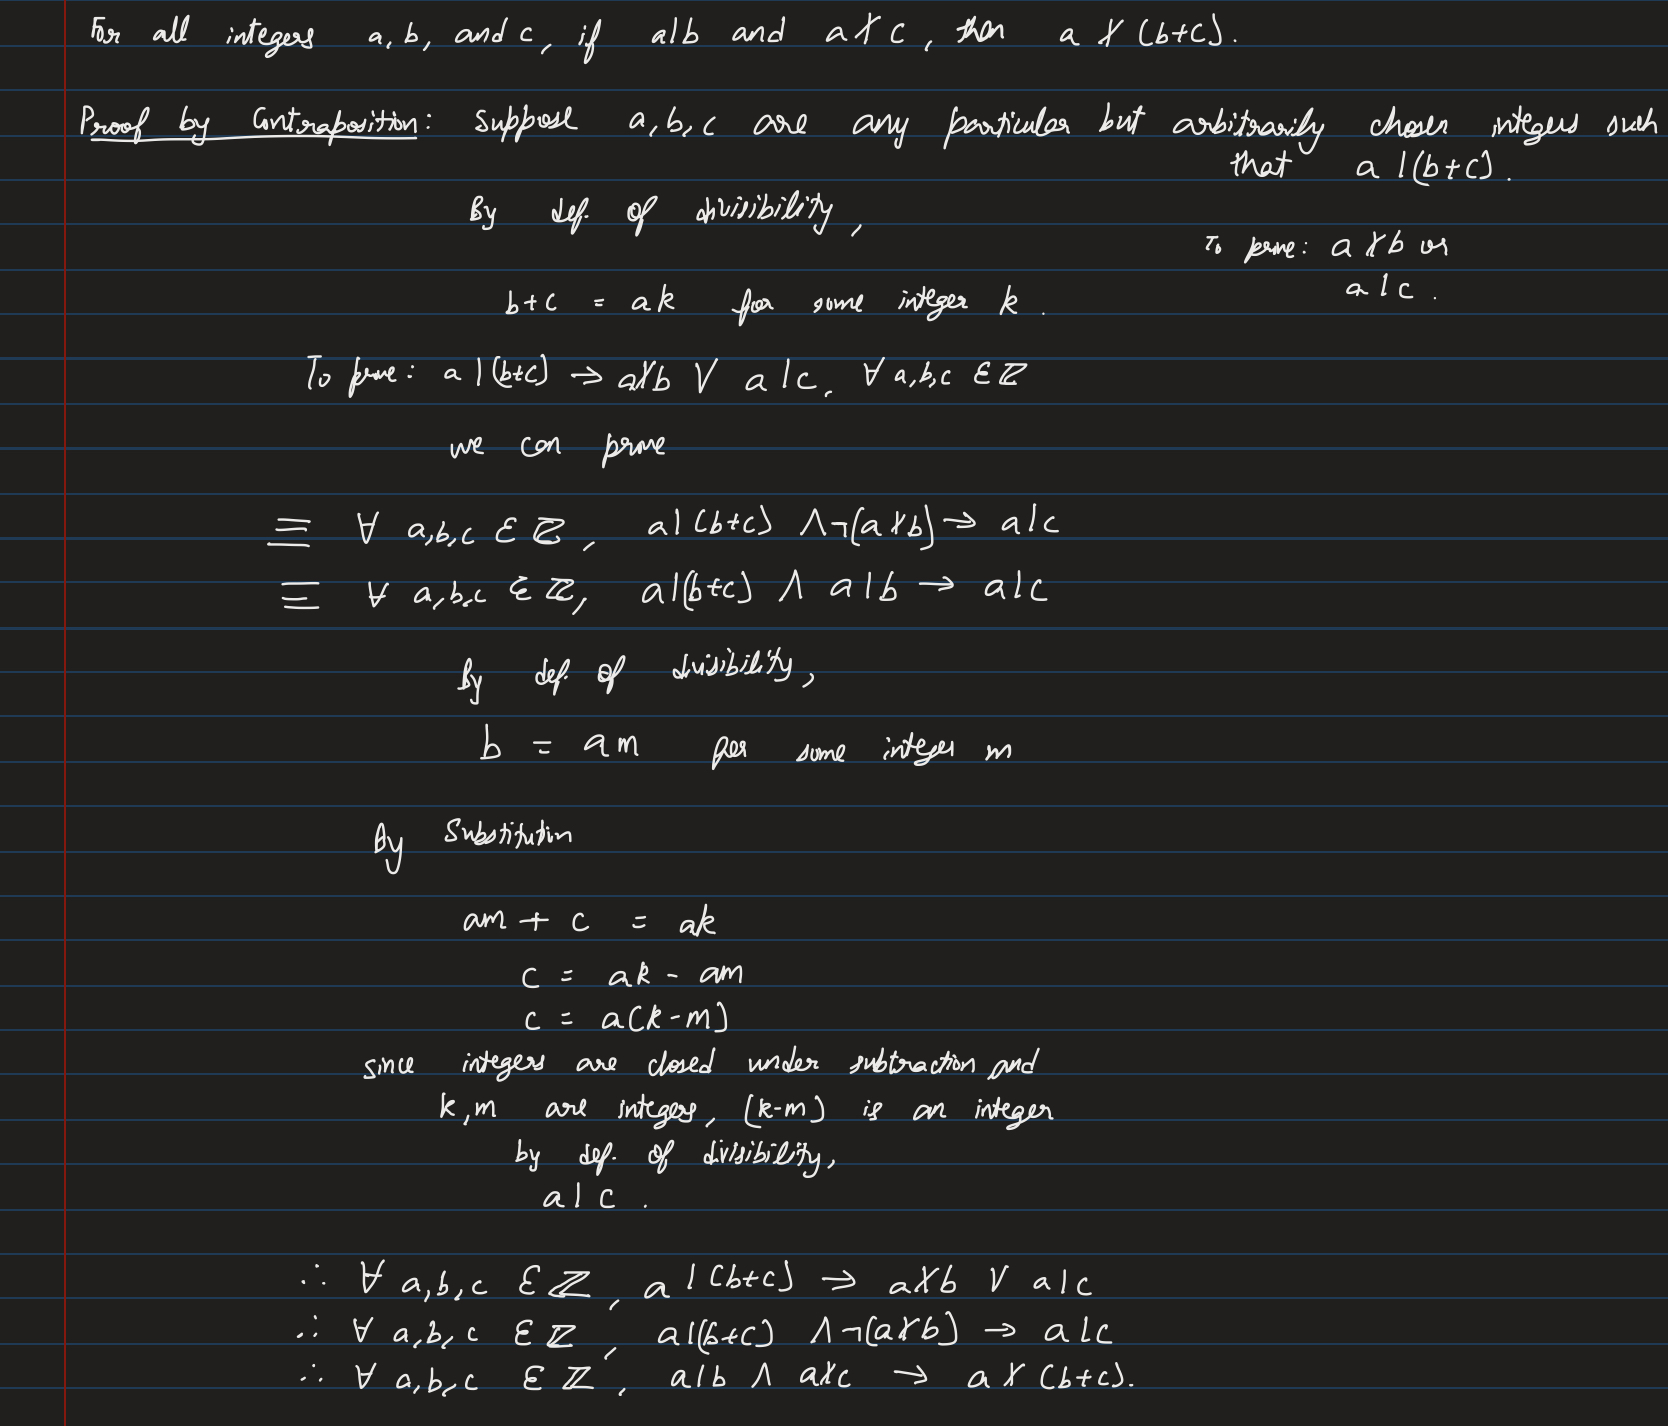 For all integers a, b, and c, if a|b and a∤c, then a∤(b+c).
Proof by Contraposition: Suppose a,b,c are any particular but arbitrarily chosen integers such
that a|(b+c).
By def. of divisibility,
To prove: a∤b or
a|c.
b+c = ak for some integer k.
To prove: a|(b+c) → a∤b ∨ a|c, ∀ a,b,c ∈ ℤ
we can prove
≡ ∀ a,b,c ∈ ℤ, a|(b+c) ∧ ¬(a∤b) → a|c
≡ ∀ a,b,c ∈ ℤ, a|(b+c) ∧ a|b → a|c
By def. of divisibility,
b = am for some integer m
By Substitution
am + c = ak
c = ak - am
c = a(k-m)
since integers are closed under subtraction and
k,m are integers, (k-m) is an integer
by def. of divisibility,
a|c.
∴ ∀ a,b,c ∈ ℤ, a|(b+c) → a∤b ∨ a|c
∴ ∀ a,b,c ∈ ℤ, a|(b+c) ∧ ¬(a∤b) → a|c
∴ ∀ a,b,c ∈ ℤ, a|b ∧ a∤c → a∤(b+c).